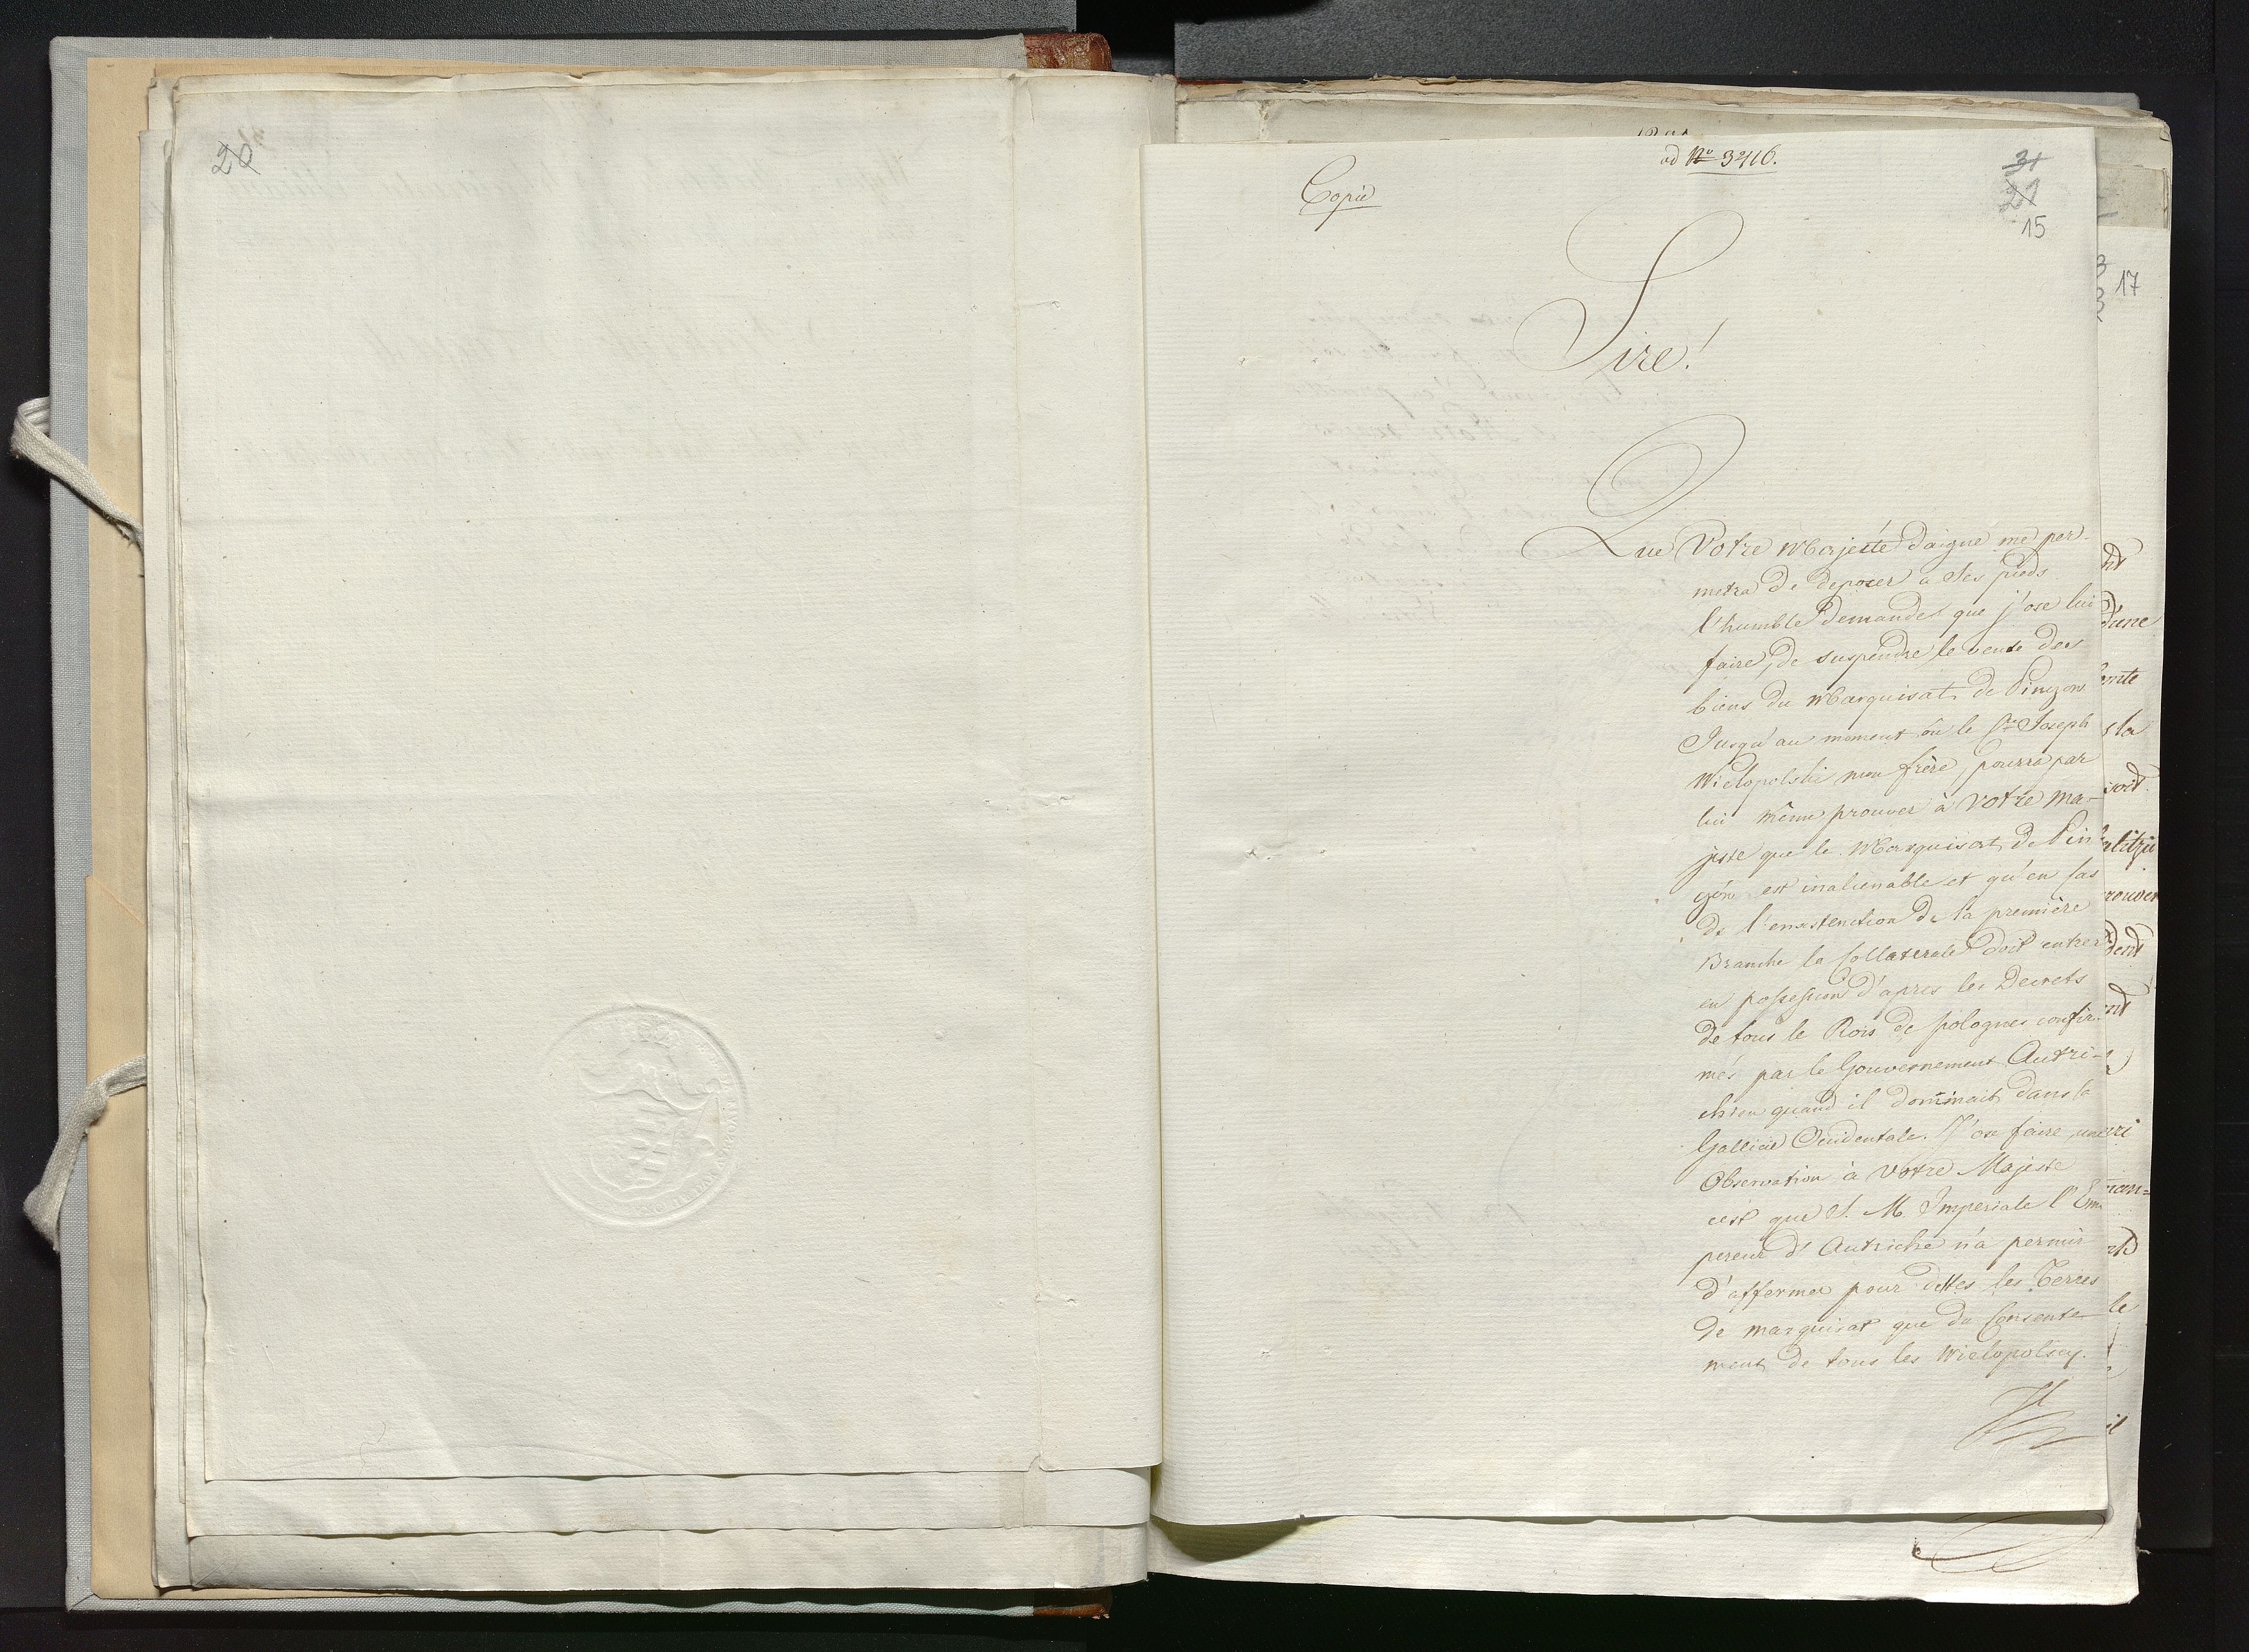 20
ad No 3716.
Copie
31
21
15
17
Sire!
Que Votre Majesté daigne me per-
mettra de deposer a Ses pieds
l'humble demande que j'ose lui
faire, de suspendre le vente des
biens du Marquisat de Pinczow
Jusqu'au moment ôu le Cte Joseph
Wielopolski mon frère, pourra par
lui même prouver à Votre Ma-
jeste que le Marquisat de Pin
czôw est inalienable et qu'en Cas
de l'enextenction de la première
Branche la Collaterale doit entrer
en possession d'apres les Decrets
de tous le Rois de pologne confir-
més par le Gouvernement Autri-
chien quand il dominait dans la
Gallicie Occidentale. J'ose faire une
Observation à Votre Majesté
cest que S. M. Imperiale l'Em
pereur d'Autriche n'a permis
d'affermer pour dettes les Terres
de marquisat que du Consente
ment de tous les Wielopolscy.